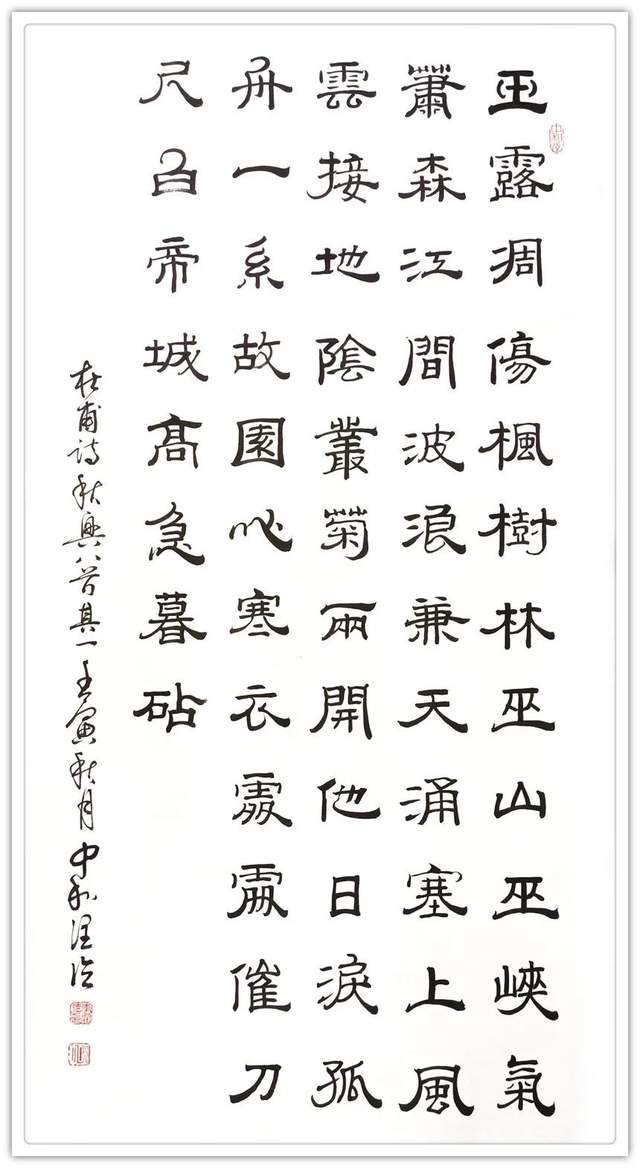 玉露凋傷楓樹林巫山巫峽氣
蕭森江間波浪兼天涌塞上風
雲接地陰叢菊兩開他日淚孤
舟一系故園心寒衣處處催刀
尺白帝城髙急暮砧
杜甫诗秋興八首其一壬寅秋月中和